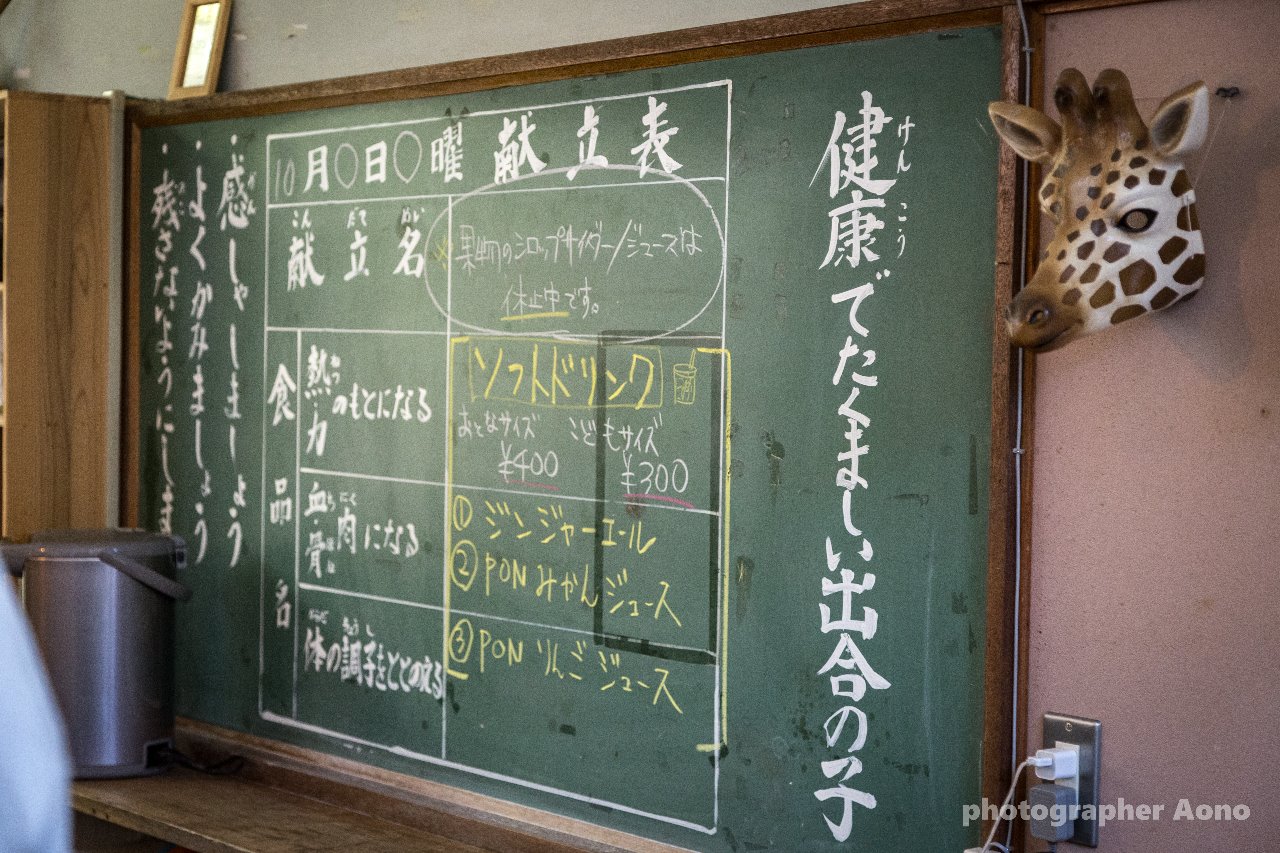 健康でたくましい出合の子
けんこう
10月○日○曜 献立表
こんだてめい
献立名
※果物のシロップサイダー/ジュースは
休止中です。
食品名
熱・力のもとになる
ねつ
血・骨・肉になる
ち ほね にく
体の調子をととのえる
からだ ちょうし
ソフトドリンク
おとなサイズ こどもサイズ
¥400 ¥300
① ジンジャーエール
② PON みかんジュース
③ PON りんごジュース
・感しゃしましょう
・よくかみましょう
・残さないようにしま
photographer Aono